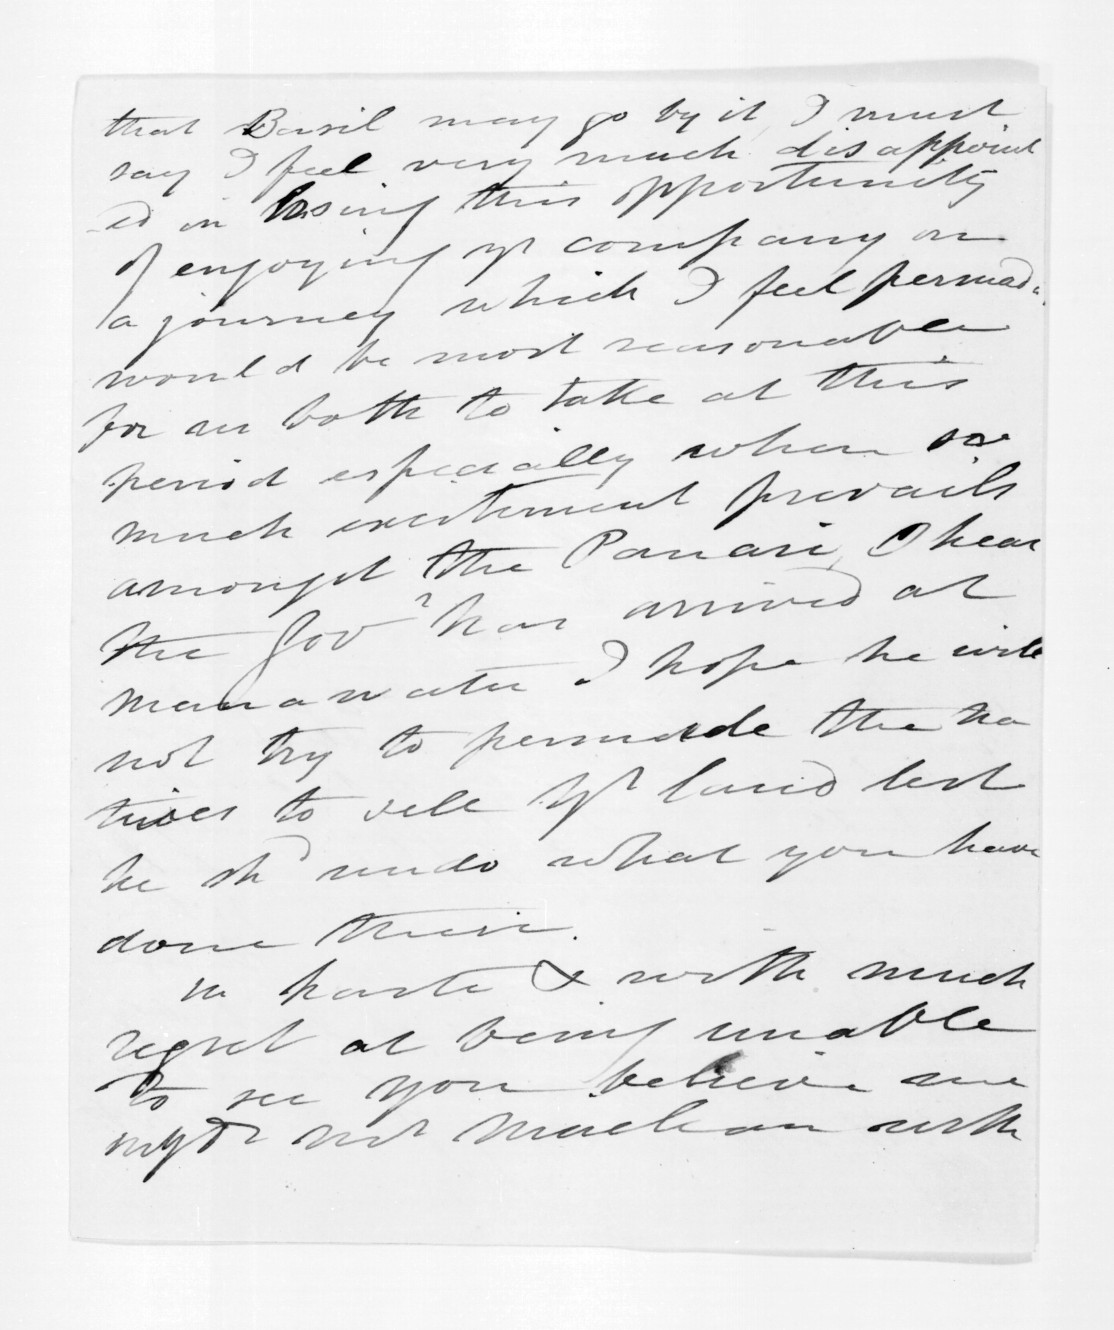 that Basil may go by it, I must
say I feel very much disappoint
ed in losing this opportunity
of enjoying yr company on
a journey which I feel persuad
would be most seasonable
for us both to take at this
period especially when so
much excitement prevails
amongst the I hear
the Govr has arrived at
Manawatu I hope he will
not try to persuade the na
tives to sell yr land lest
he shd undo what you have
done there.
In haste & with much
regret at being unable
to see you believe me
my dr Mr Maclean with